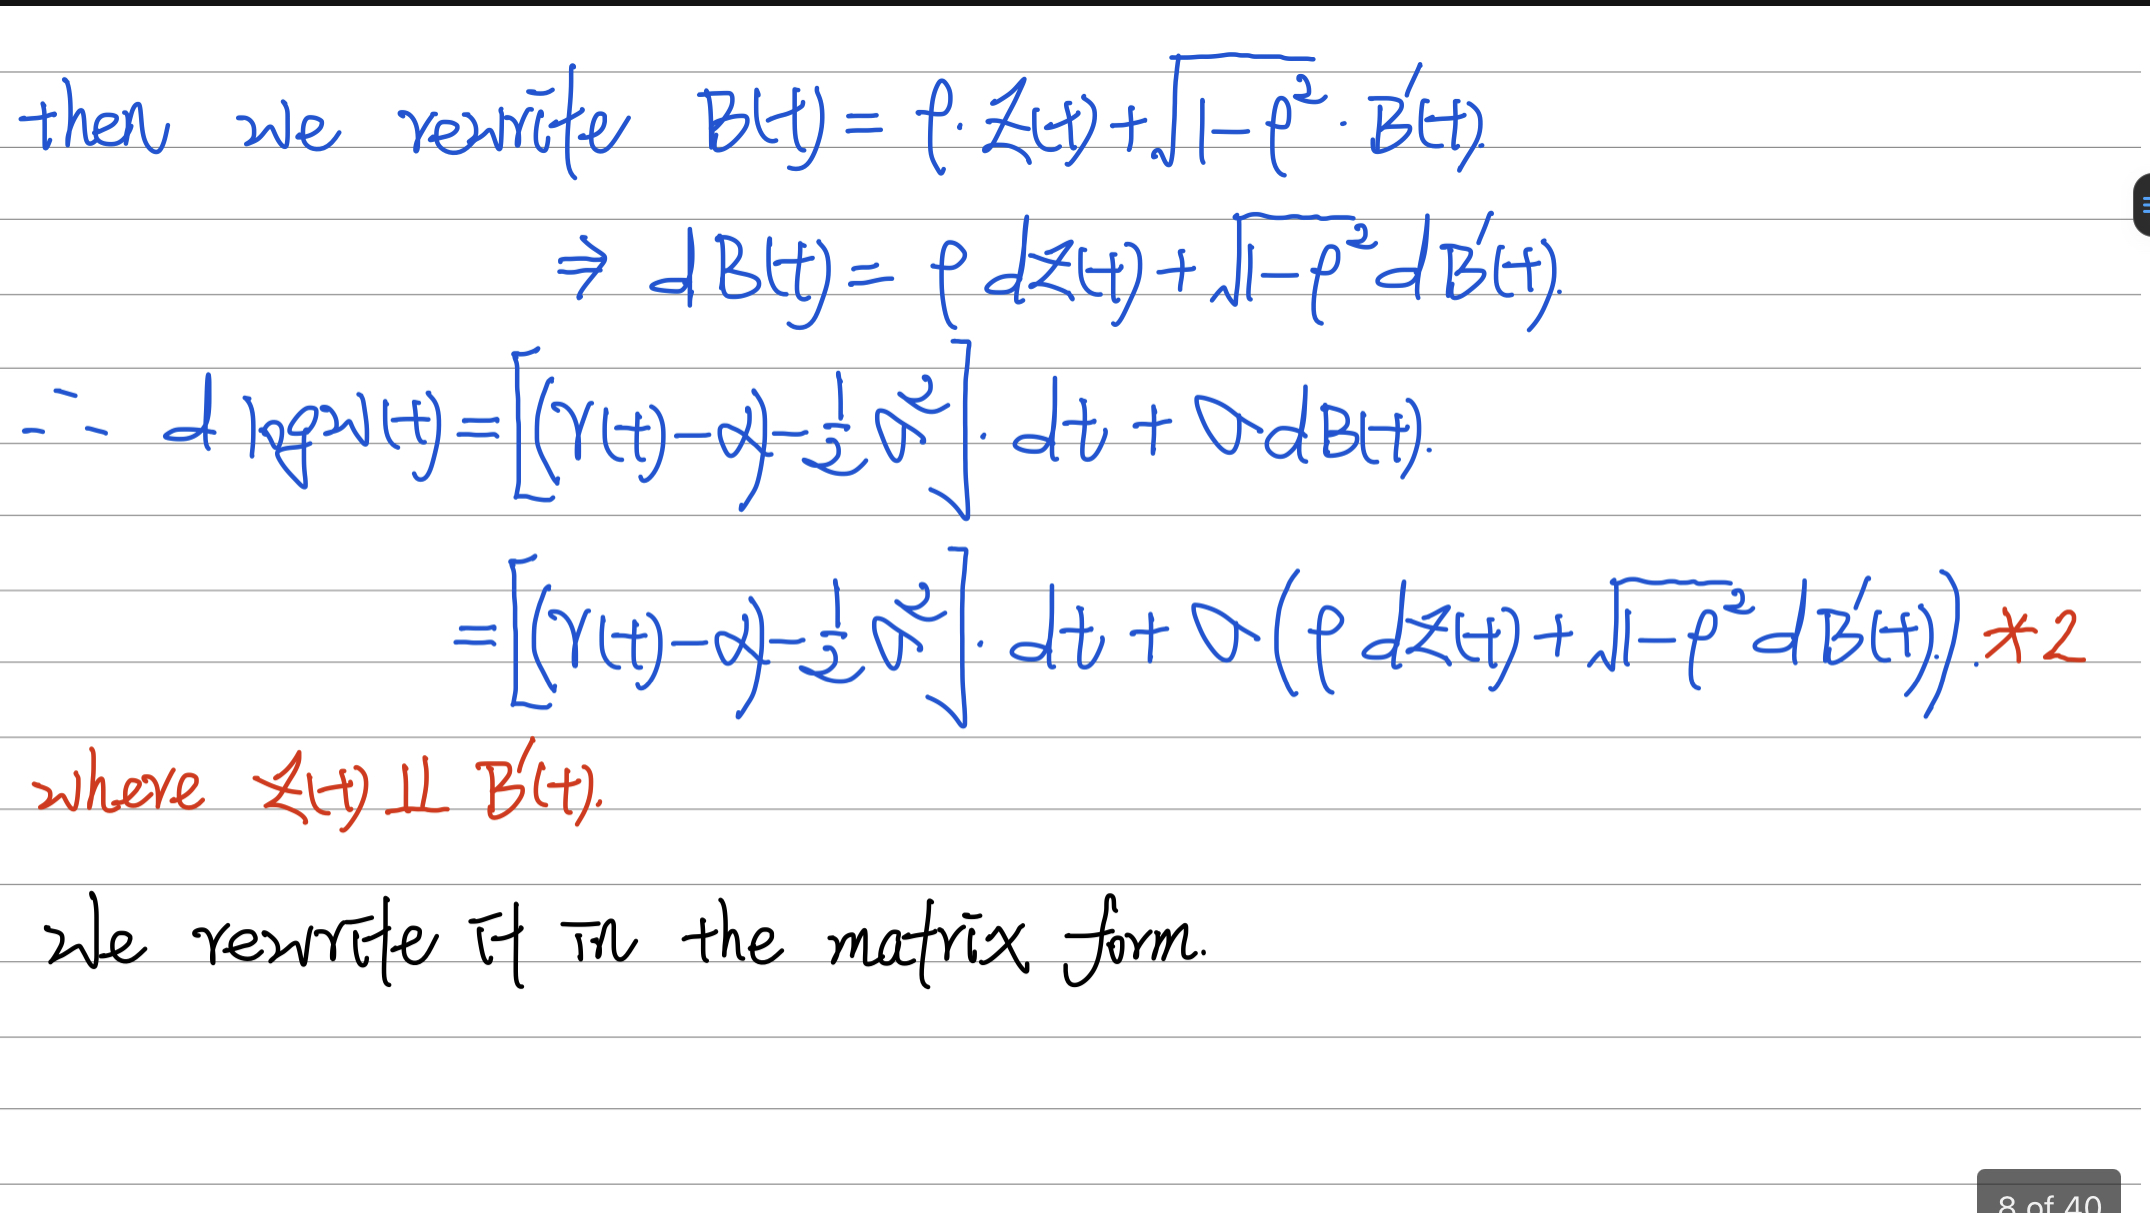 then we rewrite B(t) = ρ · Z(t) + √(1-ρ²) · B'(t).
⇒ dB(t) = ρ dZ(t) + √(1-ρ²) dB'(t).
∴ d log w(t) = [(r(t) - α) - 1/2 σ²] · dt + σ dB(t).
= [(r(t) - α) - 1/2 σ²] · dt + σ (ρ dZ(t) + √(1-ρ²) dB'(t).). *2
where Z(t) ⫫ B'(t).
We rewrite it in the matrix form.
8 of 40